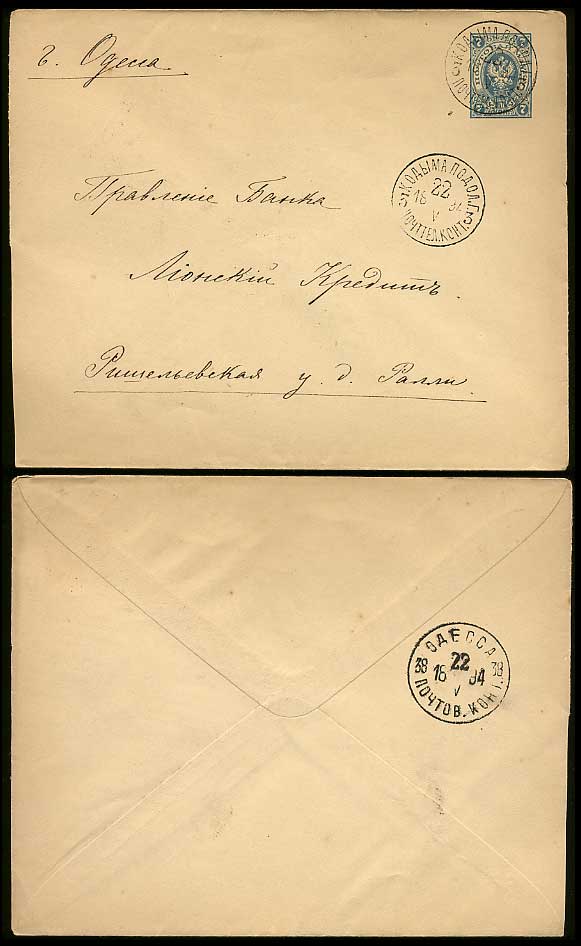 г. Одесса
КОДЫМА ПОДОЛ. Г.
22
18 94
V
ПОЧ. ТЕЛ. КОНТ.
Правленіе Банка
Ліонскій Кредитъ
Ришельевская у. д. Ралли.
ОДЕССА
38 22 38
18 94
V
ПОЧТОВ. КОНТ.